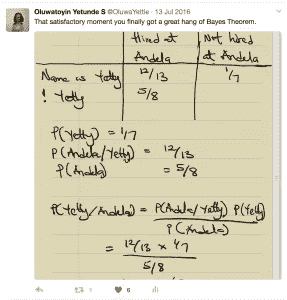 Oluwatoyin Yetunde S @OluwaYettie · 13 Jul 2016
That satisfactory moment you finally got a great hang of Bayes Theorem.
Hired at Andela
Not hired at Andela
Name is Yetty 12/13 1/7
! Yetty 5/8
P(Yetty) = 1/7
P(Andela/Yetty) = 12/13
P(Andela) = 5/8
P(Yetty/Andela) = P(Andela/Yetty) P(Yetty)
P(Andela)
= 12/13 x 1/7
5/8
1
6